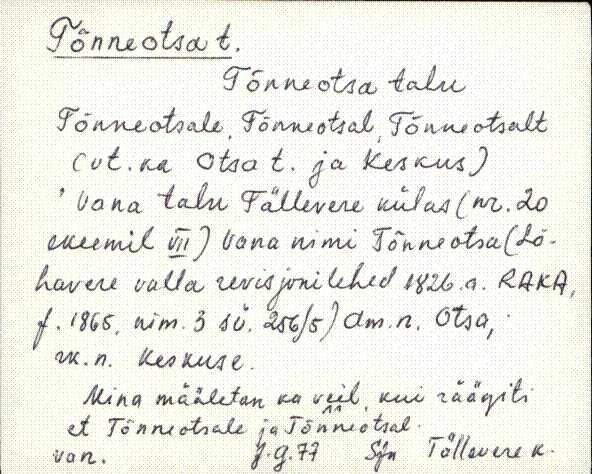 Tõnneotsa t.
Tõnneotsa talu
Tõnneotsale, Tõnneotsal, Tõnneotsalt
(vt. ka Otsa t. ja Keskus)
Vana talu Tällevere külas (nr. 20
skeemil VII) Vana nimi Tõnneotsa (Lõ-
havere valla revisjonilehed 1826. a. RAKA,
f. 1865, nim. 3 sü. 256/5) Am. n. Otsa,
rk. n. Keskuse.
Mina määletan ka veil, kui räägiti
et Tõnneotsale ja Tõnneotsal.
van. Sjn Tällevere k.